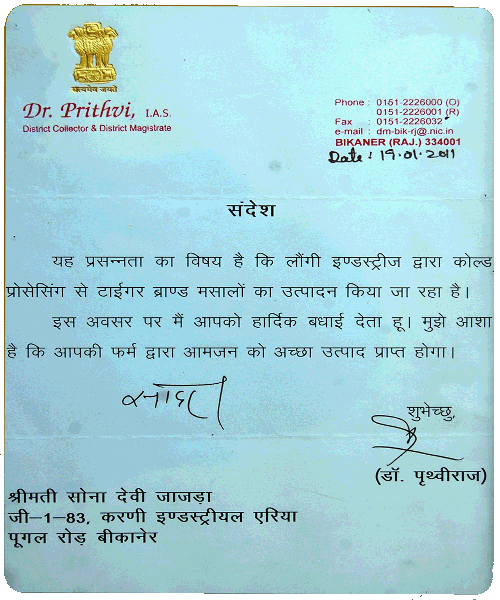 सत्यमेव जयते
Dr. Prithvi, I.A.S.
District Collector & District Magistrate
Phone : 0151-2226000 (O)
0151-2226001 (R)
Fax : 0151-2226032
e-mail : dm-bik-rj@nic.in
BIKANER (RAJ.) 334001
Date : 19.01.2011
संदेश
यह प्रसन्नता का विषय है कि लौंगी इण्डस्ट्रीज द्वारा कोल्ड
प्रोसेसिंग से टाईगर ब्राण्ड मसालों का उत्पादन किया जा रहा है।
इस अवसर पर मैं आपको हार्दिक बधाई देता हू। मुझे आशा
है कि आपकी फर्म द्वारा आमजन को अच्छा उत्पाद प्राप्त होगा।
सादर
शुभेच्छु,
(डॉ. पृथ्वीराज)
श्रीमती सोना देवी जाजड़ा
जी-1-83, करणी इण्डस्ट्रीयल एरिया
पूगल रोड़ बीकानेर